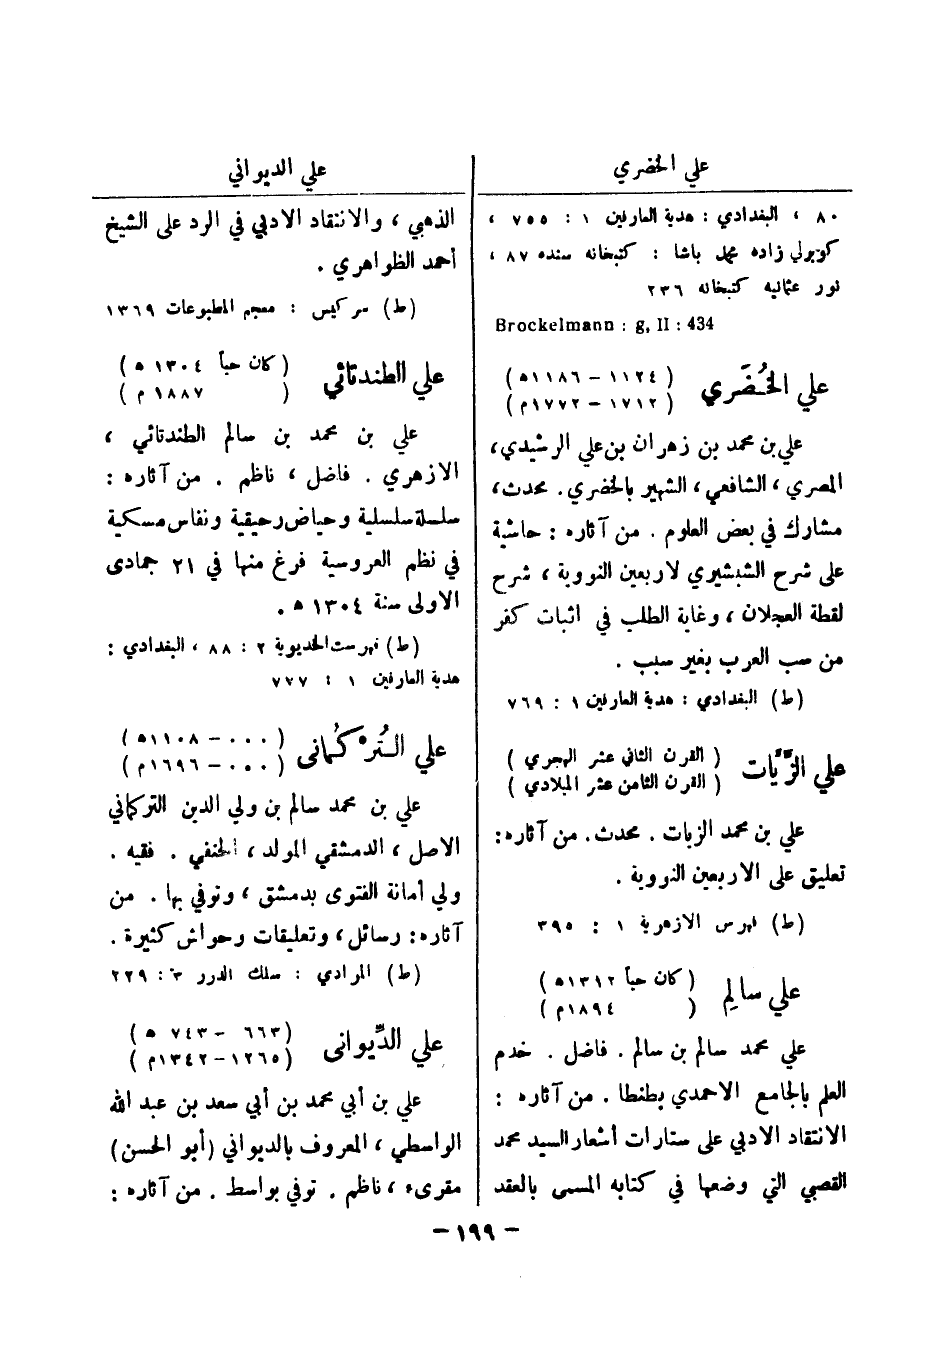 علي الخضري
٨٠ ، البغدادي : هدية العارفين ١ : ٧٥٥ ،
كوبرلي زاده محمد باشا : كتبخانه سنده ٨٧ ،
نور عثمانيه كتبخانه ٢٣٦
Brockelmann : g, II : 434
علي الخُضَري ( ١١٢٤ – ١١٨٦ ه )
( ١٧١٢ – ١٧٧٢ م )
علي بن محمد بن زهران بن علي الرشيدي،
المصري ، الشافعي ، الشهير بالخضري . محدث،
مشارك في بعض العلوم . من آثاره : حاشية
على شرح الشبشيري لاربعين النووية ، شرح
لقطة العجلان ، وغاية الطلب في اثبات كفر
من سب العرب بغير سبب .
(ط) البغدادي : هدية العارفين ١ : ٧٦٩
علي الزَّيَّات ( القرن الثاني عشر الهجري )
( القرن الثامن عشر الميلادي )
علي بن محمد الزيات . محدث . من آثاره:
تعليق على الاربعين النووية .
(ط) فهرس الازهرية ١ : ٣٩٥
علي سالِم ( كان حياً ١٣١٢ ه )
( ١٨٩٤ م )
علي محمد سالم بن سالم . فاضل . خدم
العلم بالجامع الاحمدي بطنطا . من آثاره :
الانتقاد الادبي على ستارات أشعار السيد محمد
القصبي التي وضعها في كتابه المسمى بالعقد
علي الديواني
الذهبي ، والانتقاد الادبي في الرد على الشيخ
أحمد الظواهري .
(ط) سركيس : معجم المطبوعات ١٣٦٩
علي الطندتائي ( كان حياً ١٣٠٤ ه )
( ١٨٨٧ م )
علي بن محمد بن سالم الطندتائي ،
الازهري . فاضل ، ناظم . من آثاره :
سلسلة سلسلية وحياض رحيقية ونفاس مسكية
في نظم العروسية فرغ منها في ٢١ جمادى
الاولى سنة ١٣٠٤ ه .
(ط) فهرست الخديوية ٢ : ٨٨ ، البغدادي :
هدية العارفين ١ : ٧٧٧
علي التُرْكُمانى ( ... – ١١٠٨ ه )
( ... – ١٦٩٦ م )
علي بن محمد سالم بن ولي الدين التركماني
الاصل ، الدمشقي المولد ، الحنفي . فقيه .
ولي أمانة الفتوى بدمشق ، وتوفي بها . من
آثاره : رسائل ، وتعليقات وحواش كثيرة .
(ط) المرادي : سلك الدرر ٣ : ٢٢٩
علي الدِّيوانى ( ٦٦٣ – ٧٤٣ ه )
( ١٢٦٥ – ١٣٤٢ م )
علي بن أبي محمد بن أبي سعد بن عبد الله
الواسطي ، المعروف بالديواني ( أبو الحسن )
مقرىء ، ناظم . توفي بواسط . من آثاره :
– ١٩٩ –